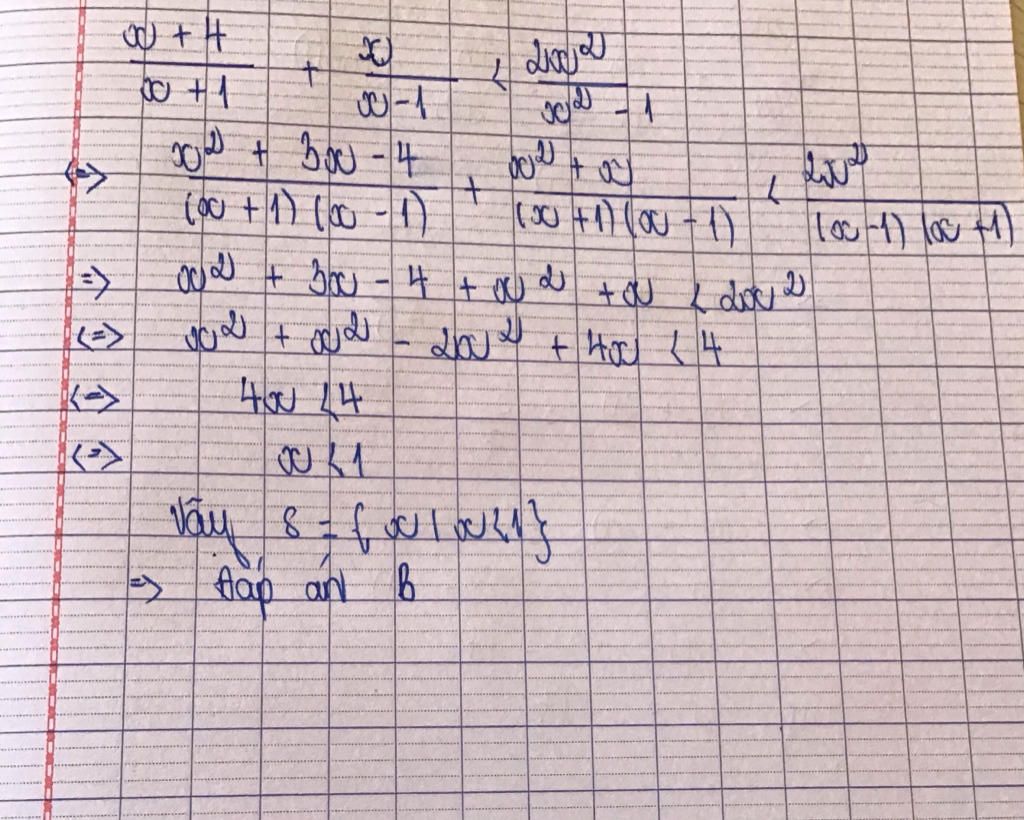 x + 4 / x + 1 + x / x - 1 < 2x² / x² - 1
<=> x² + 3x - 4 / (x + 1) (x - 1) + x² + x / (x + 1) (x - 1) < 2x² / (x - 1) (x + 1)
=> x² + 3x - 4 + x² + x < 2x²
<=> x² + x² - 2x² + 4x < 4
<=> 4x < 4
<=> x < 1
Vậy S = { x | x < 1 }
=> Đáp án B